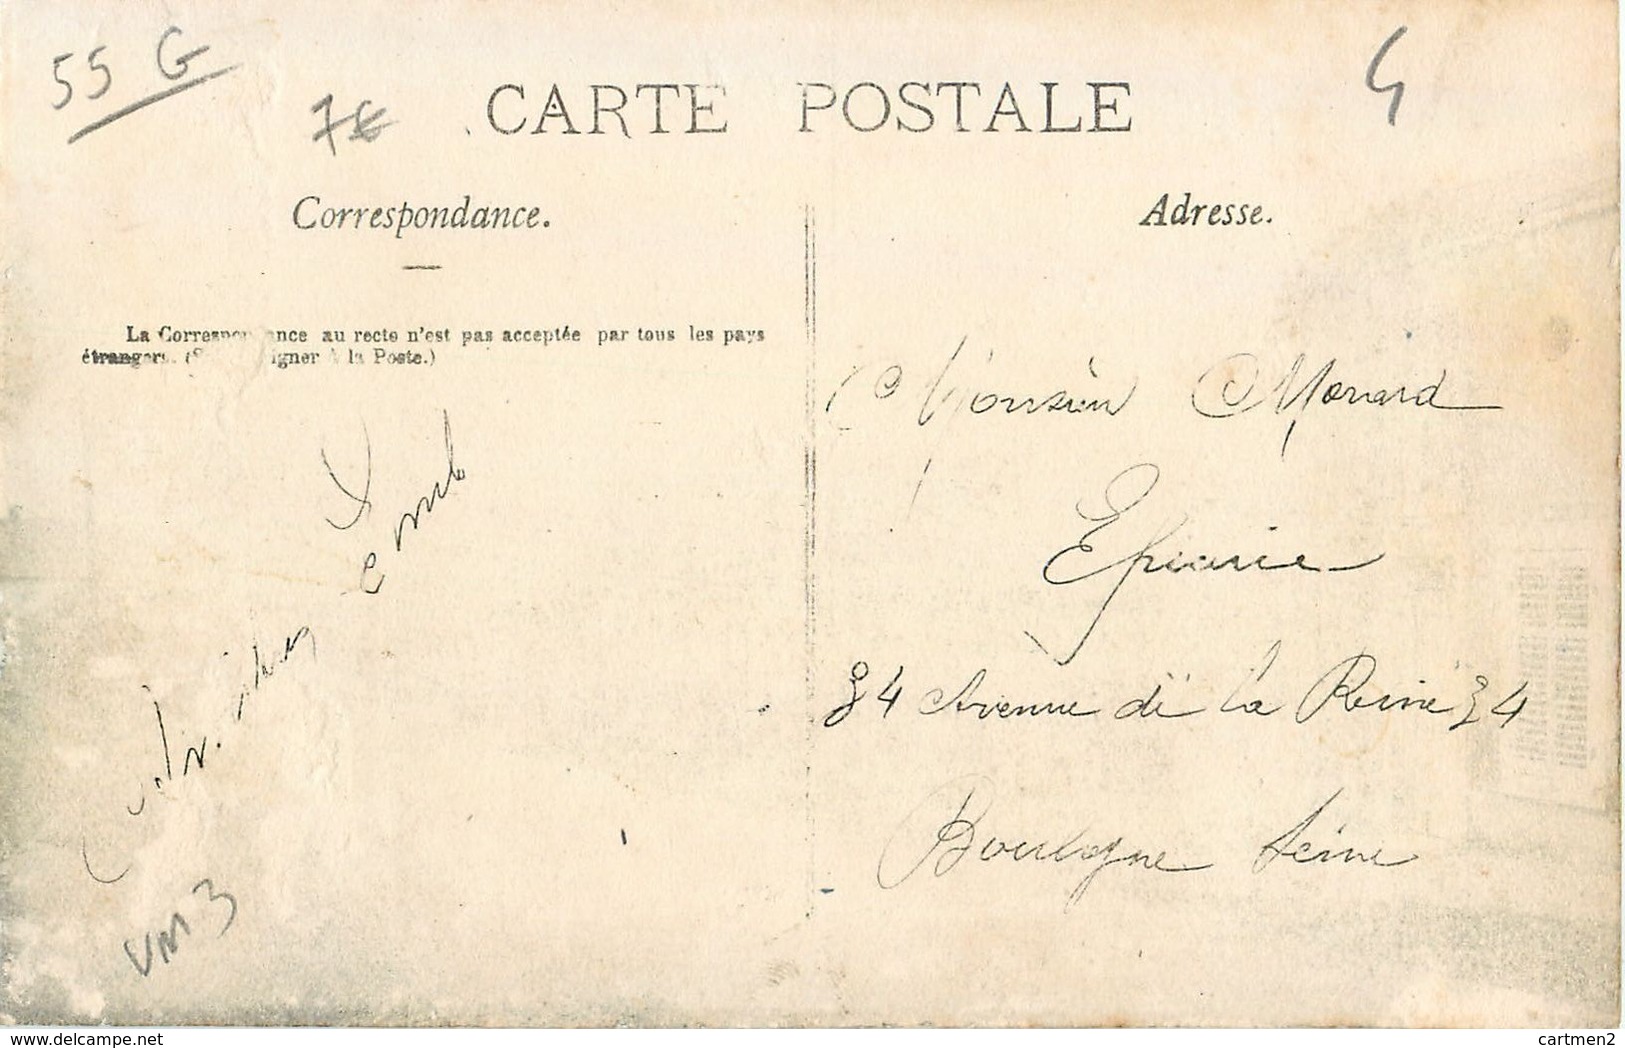 55 G
7€
4
CARTE POSTALE
Correspondance.
Adresse.
La Correspondance au recto n'est pas acceptée par tous les pays
étrangers. (Se renseigner à la Poste.)
Monsieur Monard
Epicerie
84 Avenue de la Reine 84
Boulogne Seine
VM3
delcampe.net
cartmen2